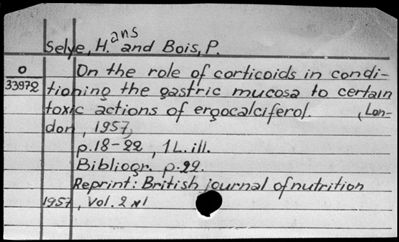 Selye, H.ans and Bois, P.
O On the role of corticoids in condi-
33972 tioning the gastric mucosa to certain
toxic actions of ergocalciferol. (Lon-
don, 1957,
p.18-22, 1L. ill.
Bibliogr. p.22.
Reprint: British journal of nutrition
1957, Vol. 2 №1